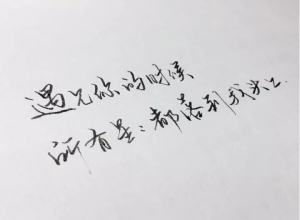 遇见你的时候
所有星星都落到我头上